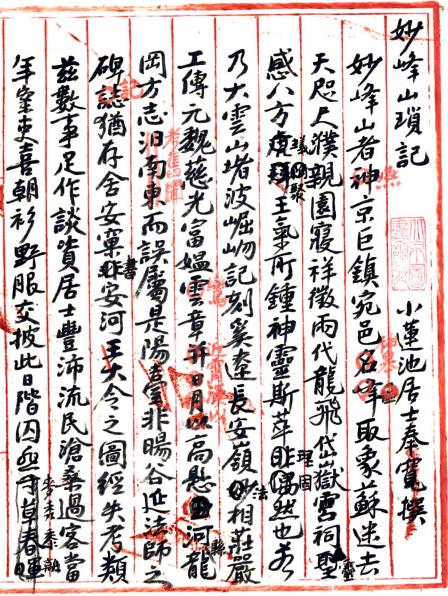 妙峰山瑣記
小蓮池居士奉寬撰
妙峰山者神京巨鎮宛邑名峰取象蘇迷去
天咫尺濮親園寢祥徵兩代龍飛岱嶽宮祠靈
感八方蟻聚王氣所鍾神靈斯萃理固然也若
乃大雲堵波崛岉記刻奚遠長安領妙法相莊嚴
工傳元魏慈光富媼雲章并日月以高懸河龍
岡方志汨南東而誤屬是陽臺非暘谷延法師之
碑誌猶存舍安窠書安河王大令之圖經失考類
茲數事足作談資居士豐沛流民滄桑過客當
年室吏喜朝衫野服交披此日階囚草春暉
考舊聞